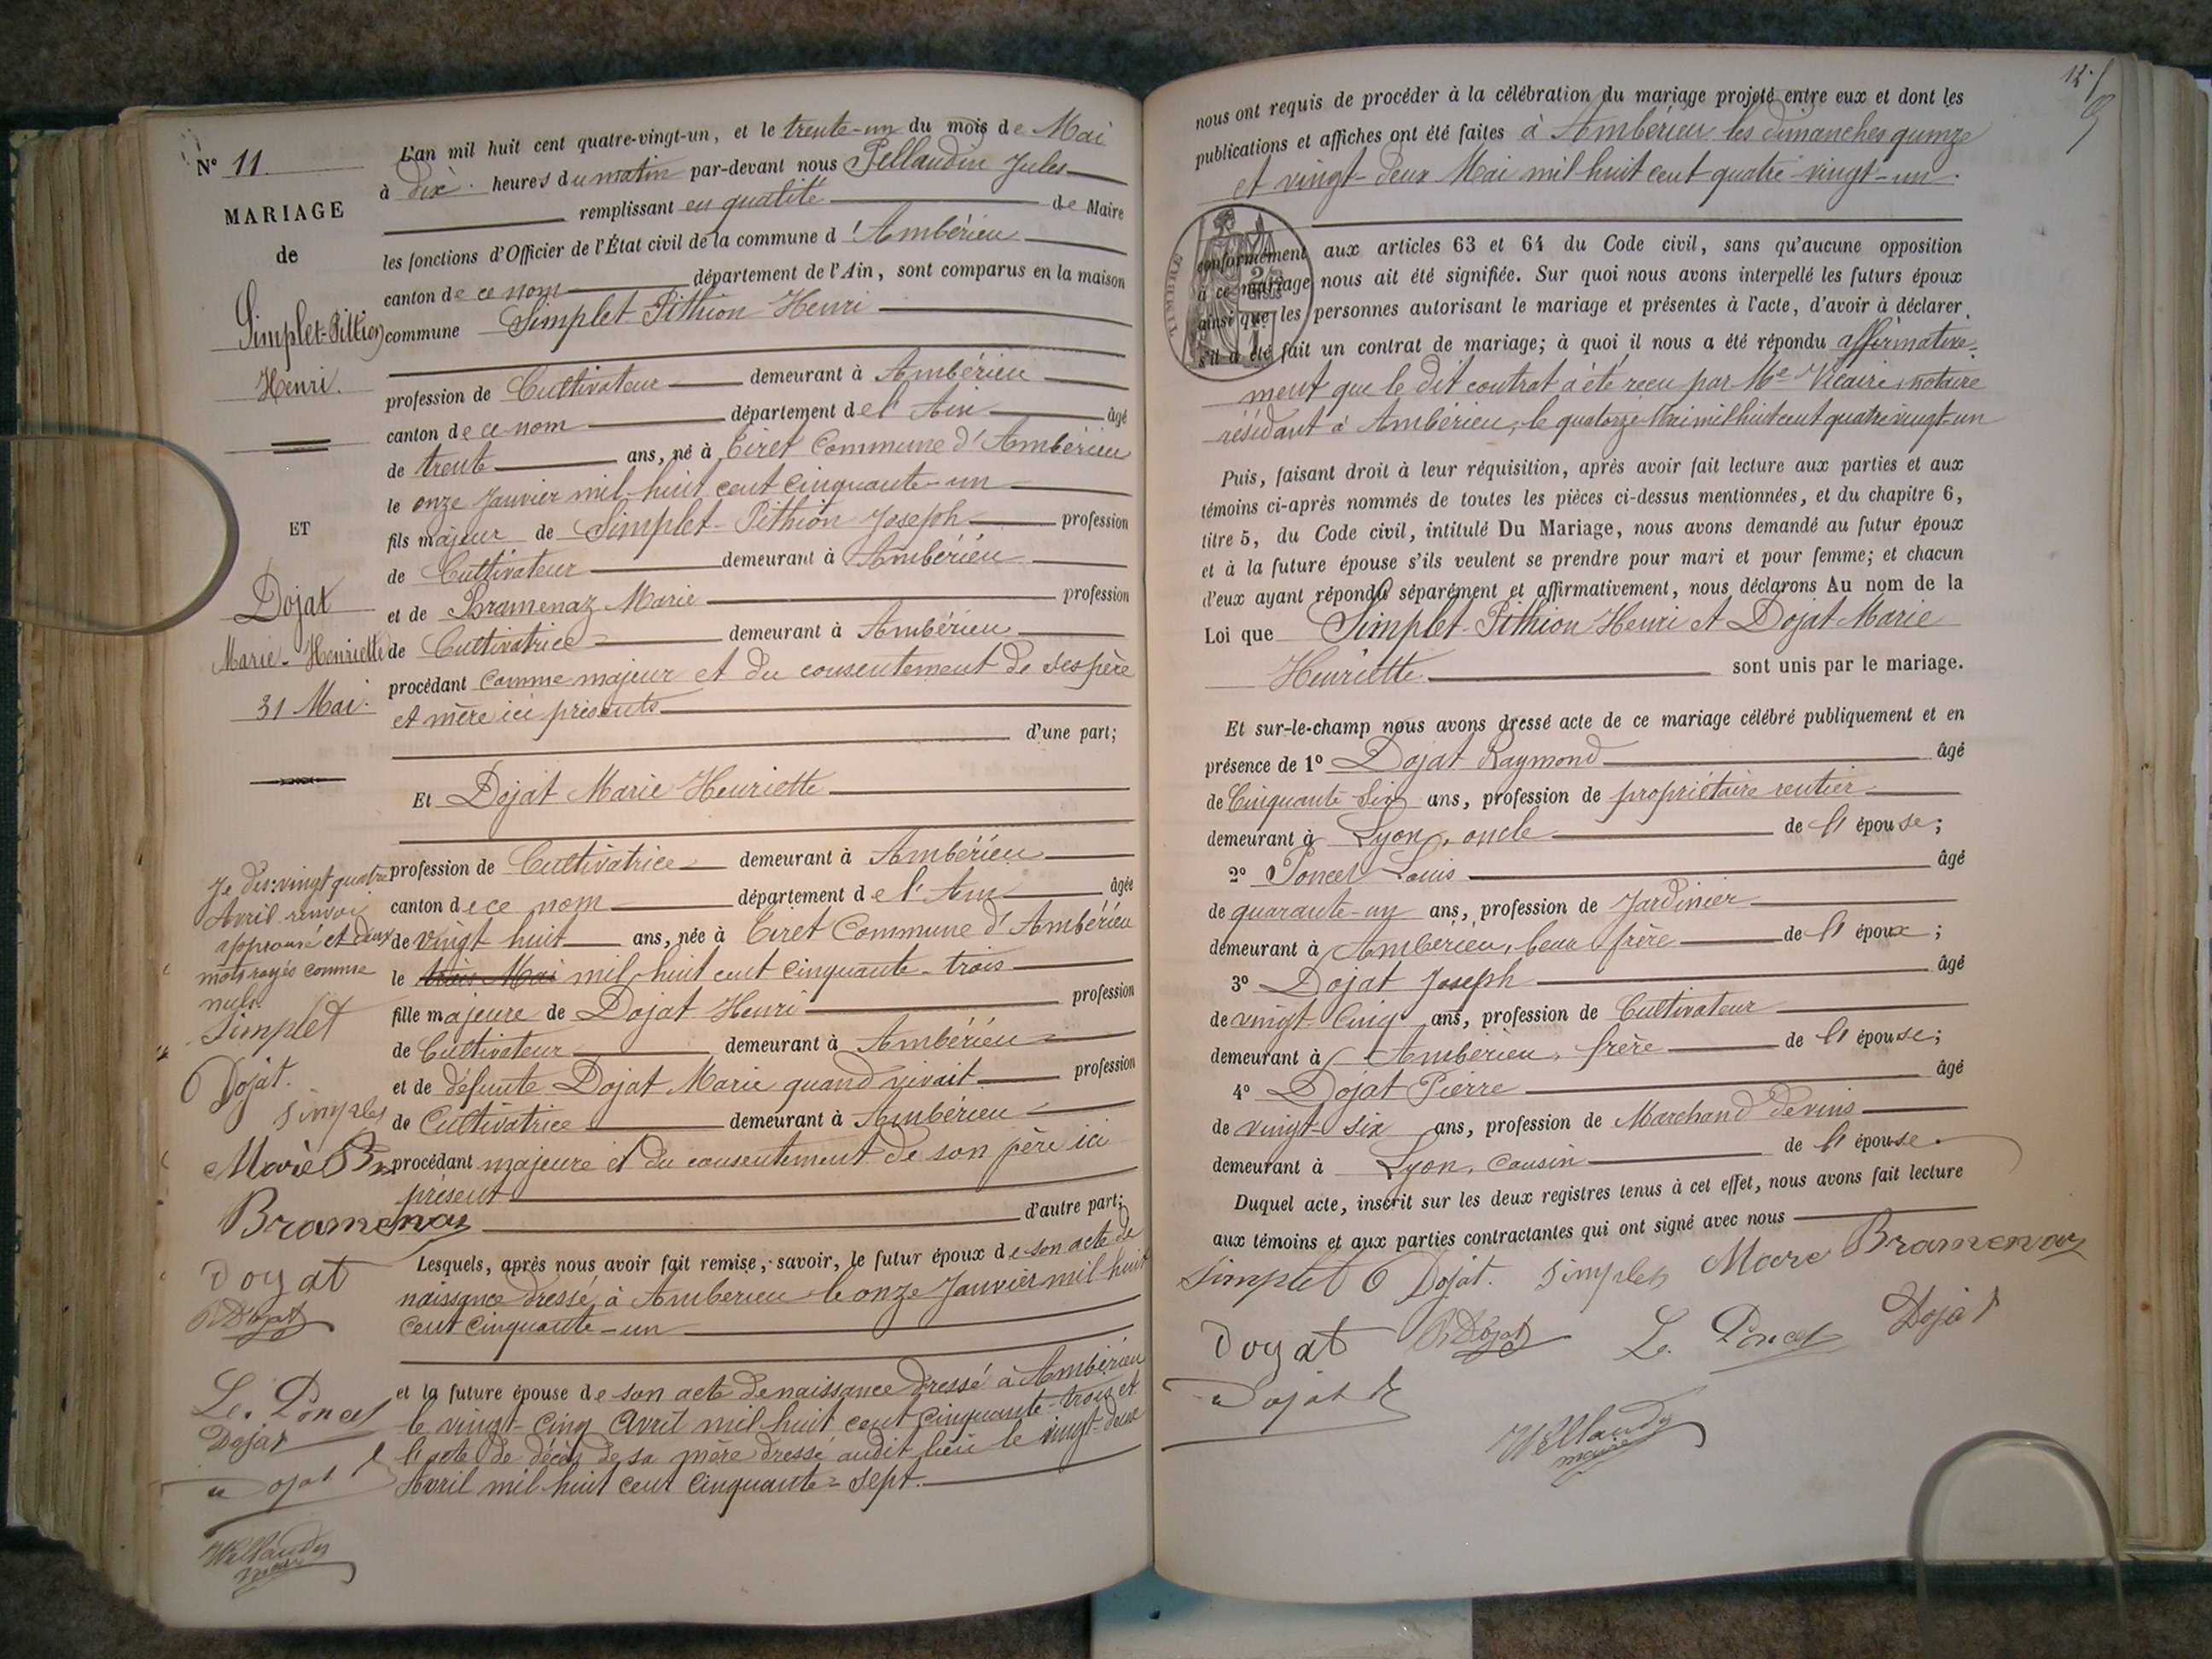 N° 11
MARIAGE
de
Simplet-Pithion
Henri.
ET
Dojat
Marie-Henriette
31 Mai.
Je dis: vingt quatre
Avril renvoi
approuvé et deux
mots rayés comme
nuls.
Simplet
Dojat.
Simplet
Marie
Bramenaz
Dojat
R Dojat
Ls. Poncet
Dojat
Dojat
maire
L'an mil huit cent quatre-vingt-un, et le trente-un du mois de Mai
à dix heures du matin par-devant nous Pellaudin Jules
remplissant en qualité de Maire
les fonctions d'Officier de l'État civil de la commune d'Ambérieu
canton de ce nom département de l'Ain, sont comparus en la maison
commune Simplet-Pithion Henri
profession de Cultivateur demeurant à Ambérieu
canton de ce nom département de l'Ain âgé
de trente ans, né à Tiret Commune d'Ambérieu
le onze Janvier mil-huit cent cinquante-un
fils majeur de Simplet-Pithion Joseph profession
de Cultivateur demeurant à Ambérieu
et de Bramenaz Marie profession
de Cultivatrice demeurant à Ambérieu
procédant comme majeur et du consentement de ses père
et mère ici présents
d'une part;
Et Dojat Marie Henriette
profession de Cultivatrice demeurant à Ambérieu
canton de ce nom département de l'Ain âgée
de vingt huit ans, née à Tiret Commune d'Ambérieu
le trois Mai mil-huit cent cinquante-trois
fille majeure de Dojat Henri profession
de Cultivateur demeurant à Ambérieu
et de défunte Dojat Marie quand vivait profession
de Cultivatrice demeurant à Ambérieu
procédant majeure et du consentement de son père ici
présent
d'autre part;
Lesquels, après nous avoir fait remise, savoir, le futur époux de son acte de
naissance dressé à Ambérieu le onze Janvier mil huit
cent cinquante-un
et la future épouse de son acte de naissance dressé à Ambérieu
le vingt-cinq Avril mil huit cent cinquante-trois et
l'acte de décès de sa mère dressé audit lieu le vingt-deux
Avril mil huit cent cinquante-sept.
12
nous ont requis de procéder à la célébration du mariage projeté entre eux et dont les
publications et affiches ont été faites à Ambérieu les dimanches quinze
et vingt-deux Mai mil huit cent quatre-vingt-un.
TIMBRE
conformément aux articles 63 et 64 du Code civil, sans qu'aucune opposition
à ce mariage nous ait été signifiée. Sur quoi nous avons interpellé les futurs époux
ainsi que les personnes autorisant le mariage et présentes à l'acte, d'avoir à déclarer
s'il a été fait un contrat de mariage; à quoi il nous a été répondu affirmative-
ment que le dit contrat a été reçu par Me Vicaire, notaire
résidant à Ambérieu, le quatorze Mai mil huit cent quatre vingt-un
Puis, faisant droit à leur réquisition, après avoir fait lecture aux parties et aux
témoins ci-après nommés de toutes les pièces ci-dessus mentionnées, et du chapitre 6,
titre 5, du Code civil, intitulé Du Mariage, nous avons demandé au futur époux
et à la future épouse s'ils veulent se prendre pour mari et pour femme; et chacun
d'eux ayant répondu séparément et affirmativement, nous déclarons Au nom de la
Loi que Simplet-Pithion Henri et Dojat Marie
Henriette sont unis par le mariage.
Et sur-le-champ nous avons dressé acte de ce mariage célébré publiquement et en
présence de 1° Dojat Raymond âgé
de Cinquante six ans, profession de propriétaire rentier
demeurant à Lyon, oncle de l'épouse;
2° Poncet Louis âgé
de quarante-un ans, profession de Jardinier
demeurant à Ambérieu, beau frère de l'époux;
3° Dojat Joseph âgé
de vingt-cinq ans, profession de Cultivateur
demeurant à Ambérieu, frère de l'épouse;
4° Dojat Pierre âgé
de vingt-six ans, profession de Marchand de vins
demeurant à Lyon, cousin de l'épouse.
Duquel acte, inscrit sur les deux registres tenus à cet effet, nous avons fait lecture
aux témoins et aux parties contractantes qui ont signé avec nous
Simplet Dojat. Simplet Marie Bramenaz
Dojat R Dojat Ls. Poncet Dojat
Dojat
maire